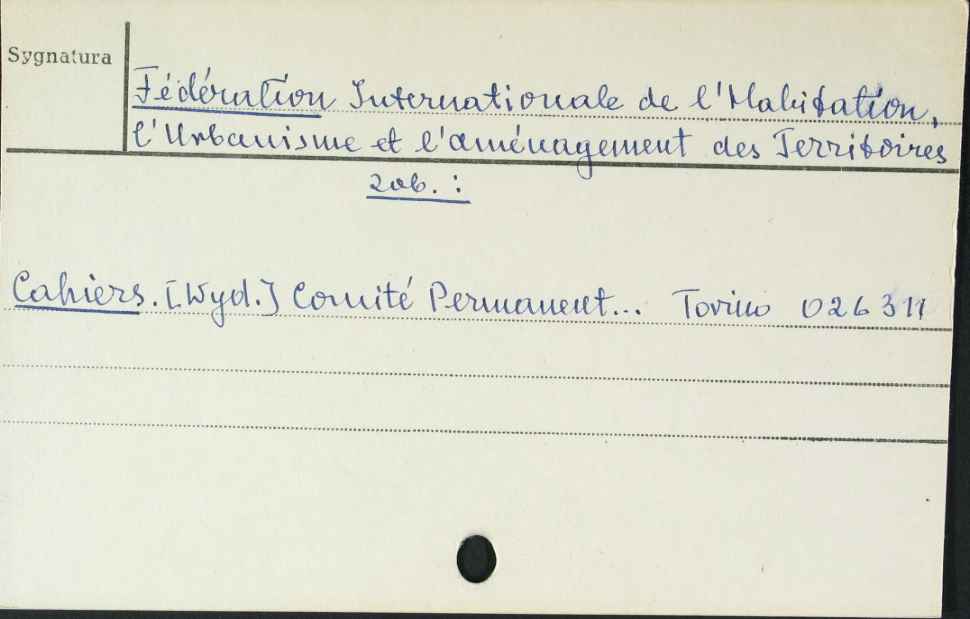 Sygnatura
Fédération Internationale de l'Habitation,
l'Urbanisme et l'aménagement des Territoires
zob. :
Cahiers. [Wyd.] Comité Permanent... Torino 026311